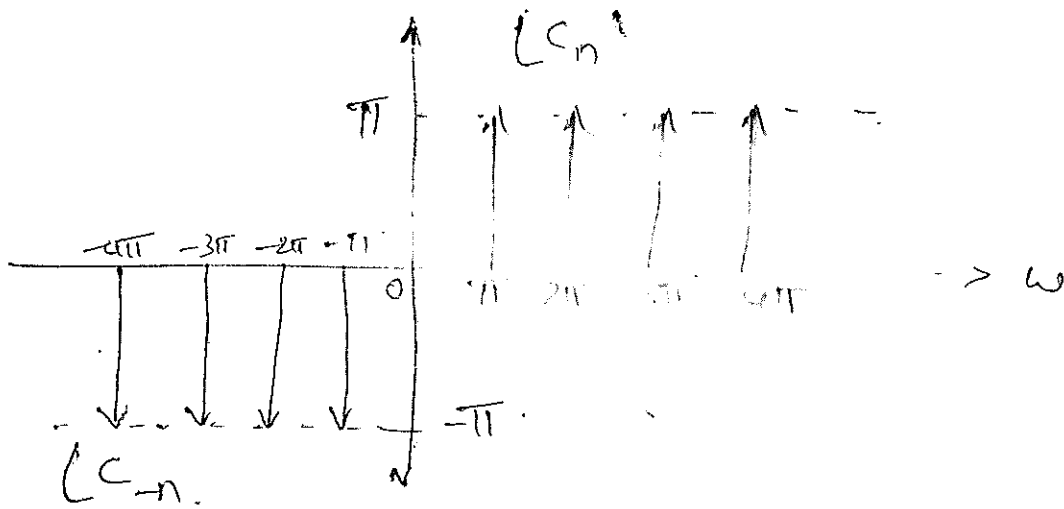 ∠Cn
π
-4π -3π -2π -π
0 π 2π 3π 4π → ω
-π
∠C-n